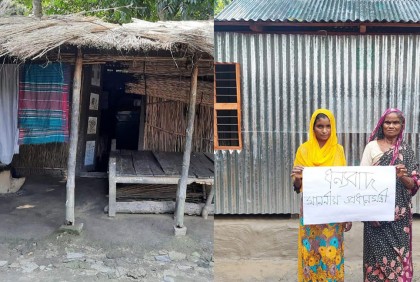 ধন্যবাদ
মাননীয় প্রধানমন্ত্রী